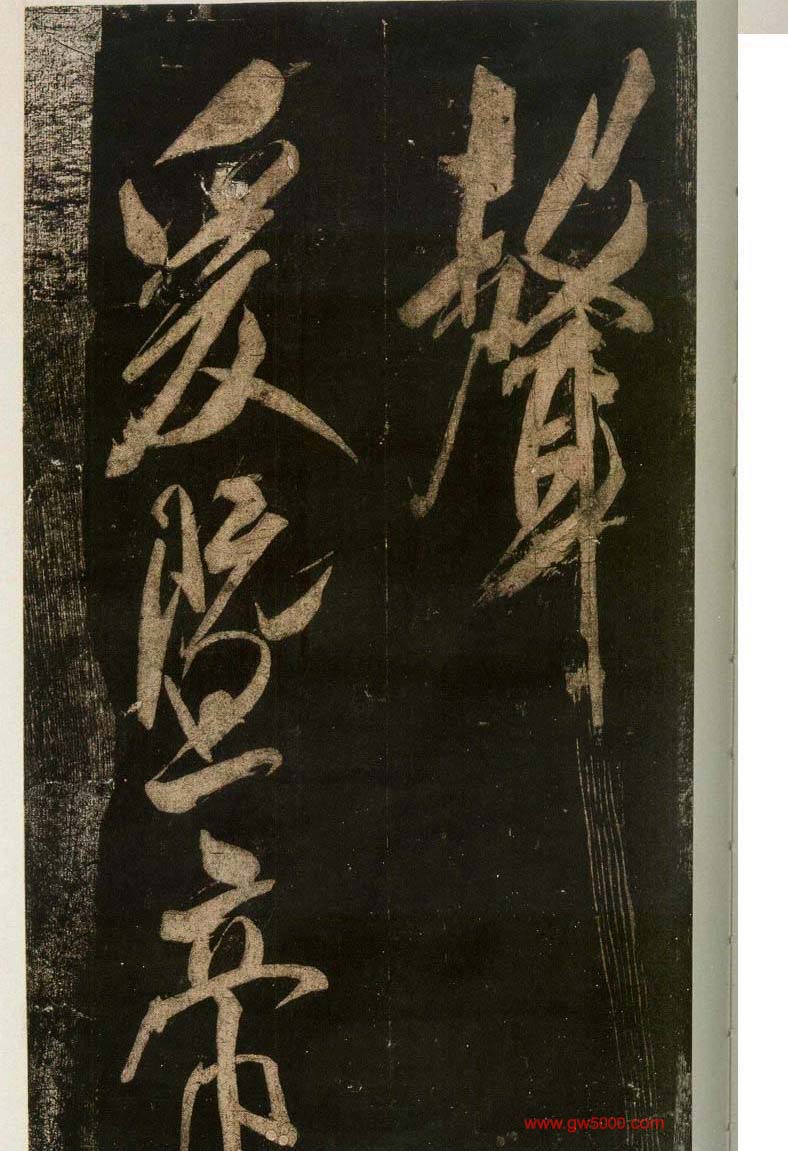 聲
爰暨帝
www.gw5000.com